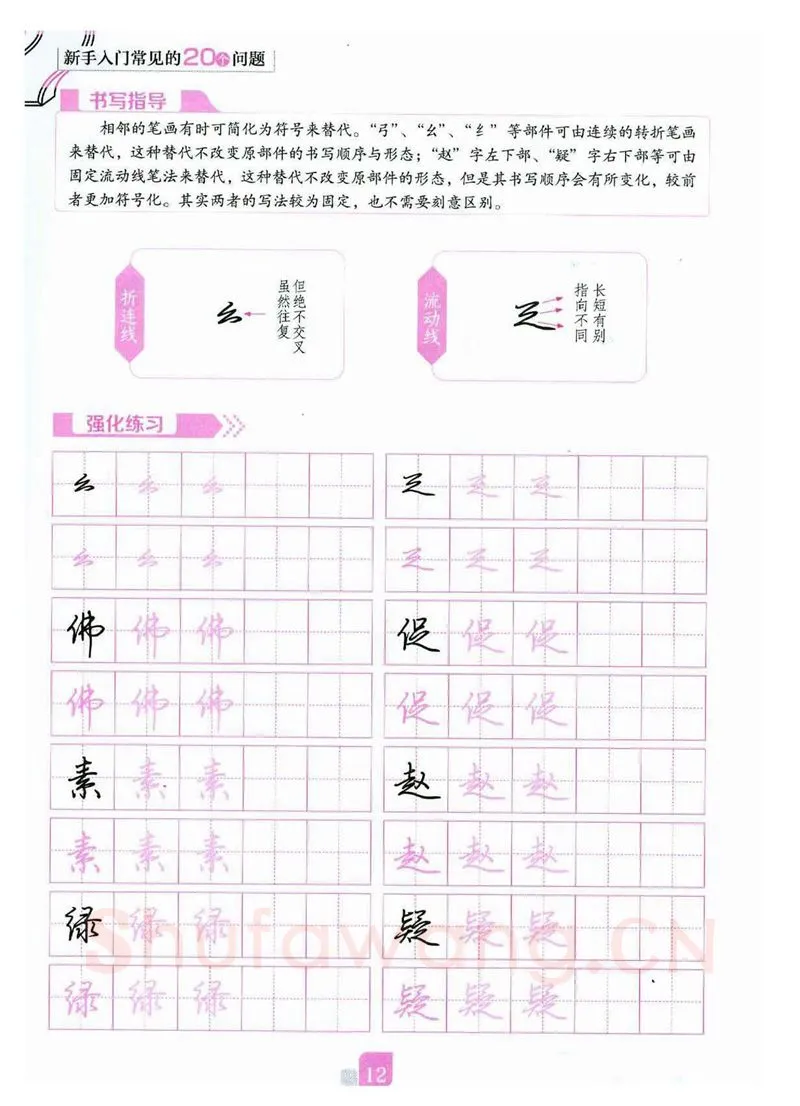 新手入门常见的20个问题
书写指导
相邻的笔画有时可简化为符号来替代。“弓”、“幺”、“纟”等部件可由连续的转折笔画
来替代，这种替代不改变原部件的书写顺序与形态；“赵”字左下部、“疑”字右下部等可由
固定流动线笔法来替代，这种替代不改变原部件的形态，但是其书写顺序会有所变化，较前
者更加符号化。其实两者的写法较为固定，也不需要刻意区别。
折连线
虽然往复
但绝不交叉
流动线
长短有别
指向不同
强化练习
佛 佛 佛
促 促 促
佛 佛 佛
促 促 促
素 素 素
赵 赵 赵
素 素 素
赵 赵 赵
绿 绿 绿
疑 疑 疑
绿 绿 绿
疑 疑 疑
Shufawang.CN
12